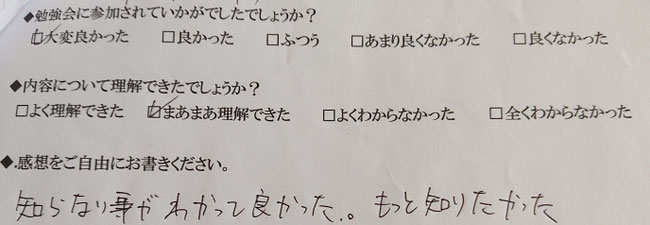 ◆勉強会に参加されていかがでしたでしょうか？
☑大変良かった □良かった □ふつう □あまり良くなかった □良くなかった
◆内容について理解できたでしょうか？
□よく理解できた ☑まあまあ理解できた □よくわからなかった □全くわからなかった
◆.感想をご自由にお書きください。
知らない事がわかって良かった。。もっと知りたかった